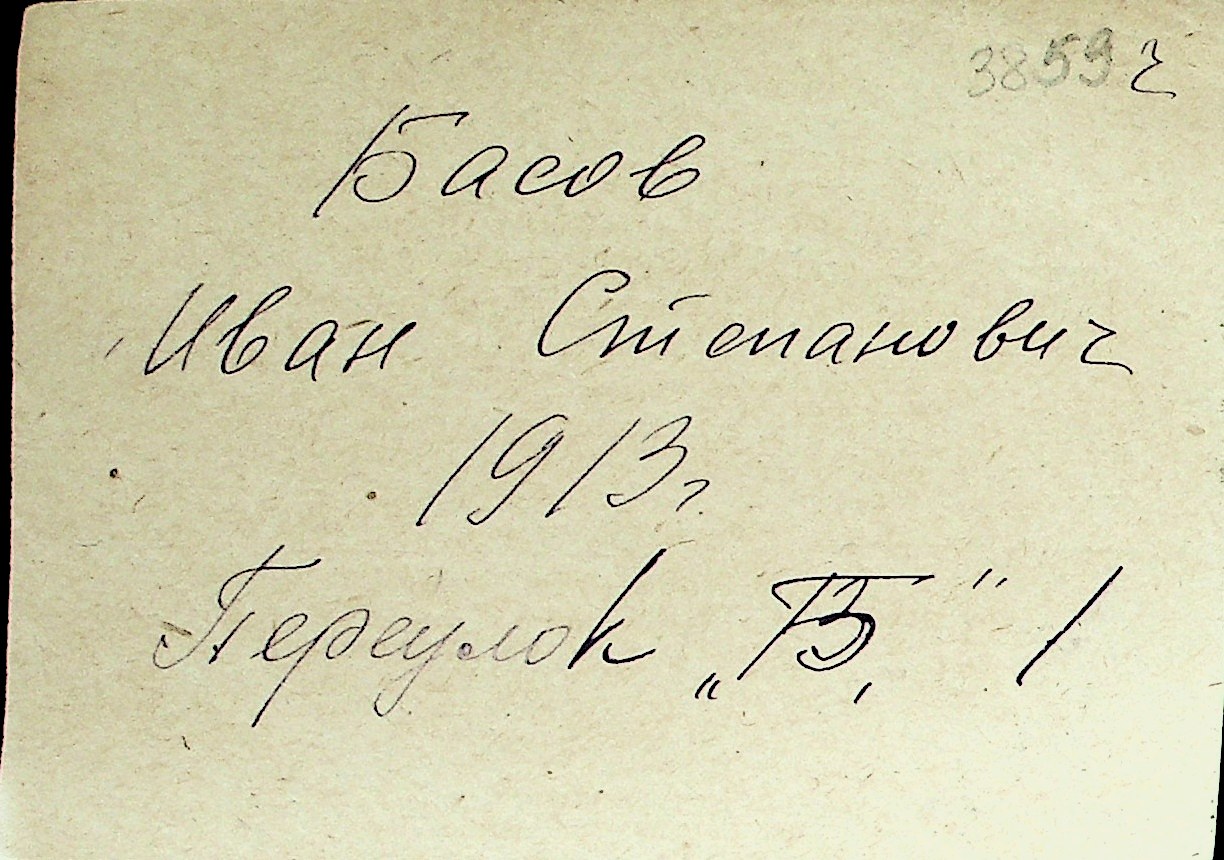 3859 ч
Басов
Иван Степанович
1913 г
Переулок „В“ 1